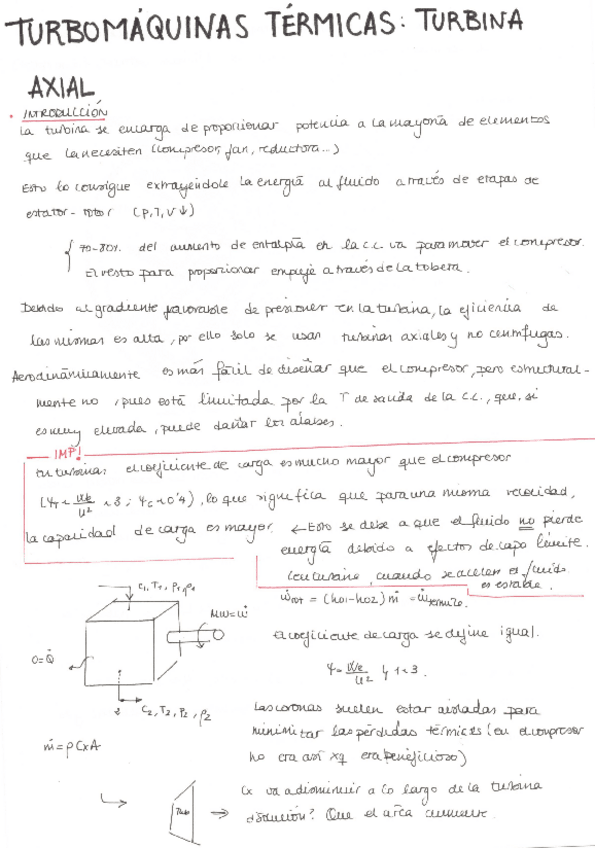 TURBOMÁQUINAS TÉRMICAS: TURBINA
AXIAL
· INTRODUCCIÓN
La turbina se encarga de proporcionar potencia a la mayoría de elementos
que la necesiten (compresor, fan, reductora...)
Esto lo consigue extrayéndole la energía al fluido a través de etapas de
estator-rotor (P,T,V↓)
70-80% del aumento de entalpía en la c.c. va para mover el compresor.
El resto para proporcionar empuje a través de la tobera.
Debido al gradiente favorable de presiones en la turbina, la eficiencia de
las mismas es alta, por ello solo se usan turbinas axiales y no centrífugas.
Aerodinámicamente es más fácil de diseñar que el compresor, pero estructural-
mente no, pues está limitada por la T de salida de la c.c., que, si
es muy elevada, puede dañar los álabes.
IMP!
En turbina: el coeficiente de carga es mucho mayor que el compresor
(ΨT ~ We/U² ~ 3 ; Ψc ~ 0'4), lo que significa que para una misma velocidad,
la capacidad de carga es mayor. ← Esto se debe a que el fluido no pierde
energía debido a efectos de capa límite.
En turbina, cuando se acelera el fluido
es estable.
c1, T1, P1, ρ1
0=Q̇
2
c2, T2, P2, ρ2
ẇrot = (h01-h02) ṁ =
El coeficiente de carga se define igual.
Ψ = We/U² y 1<3.
Las coronas suelen estar aisladas para
minimizar las pérdidas térmicas (en el compresor
no era así xq era beneficioso)
ṁ = ρ Cx A
Turb
⇒ Cx va a disminuir a lo largo de la turbina
¿solución? Que el área aumente.